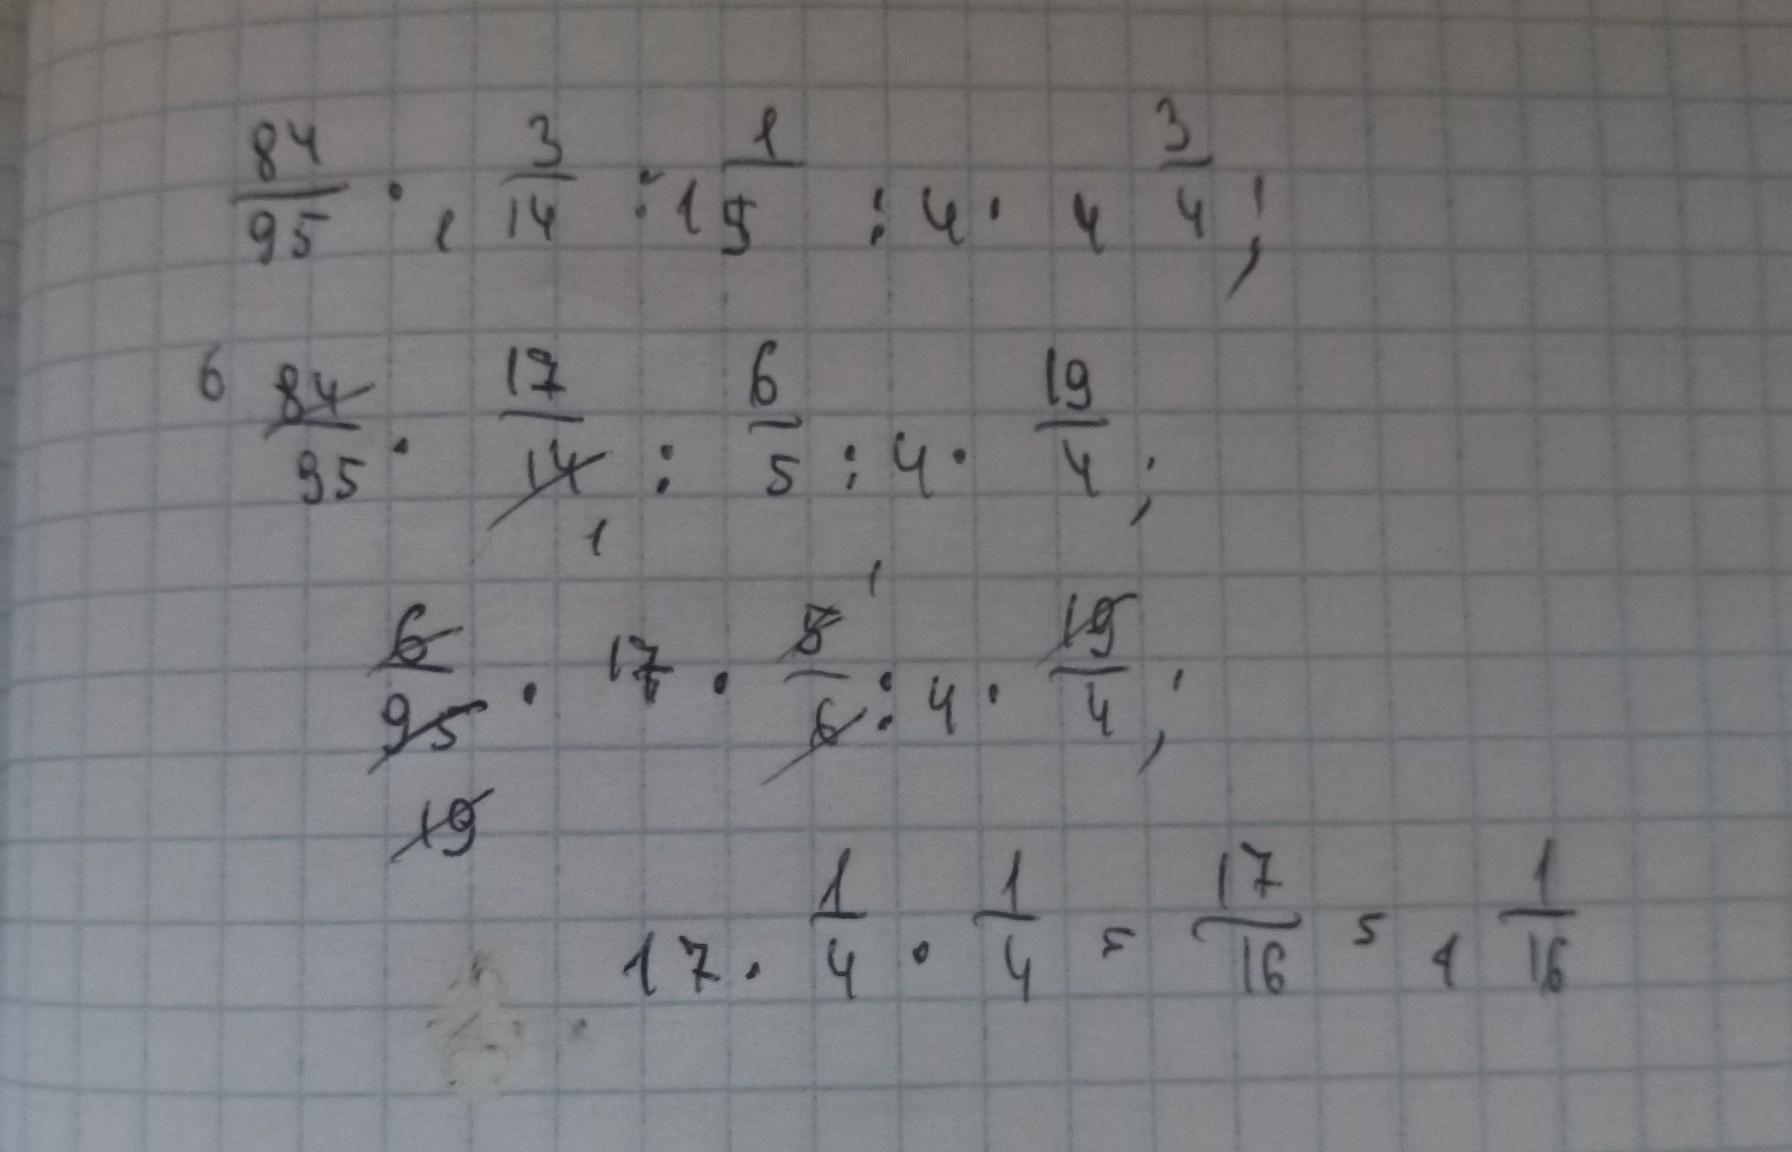 84/95 · 1 3/14 : 1 1/5 : 4 · 4 3/4;
6 84/95 · 17/14 : 6/5 : 4 · 19/4;
1
1
6/95 · 17 · 5/6 : 4 · 19/4;
19
17 · 1/4 · 1/4 = 17/16 = 1 1/16